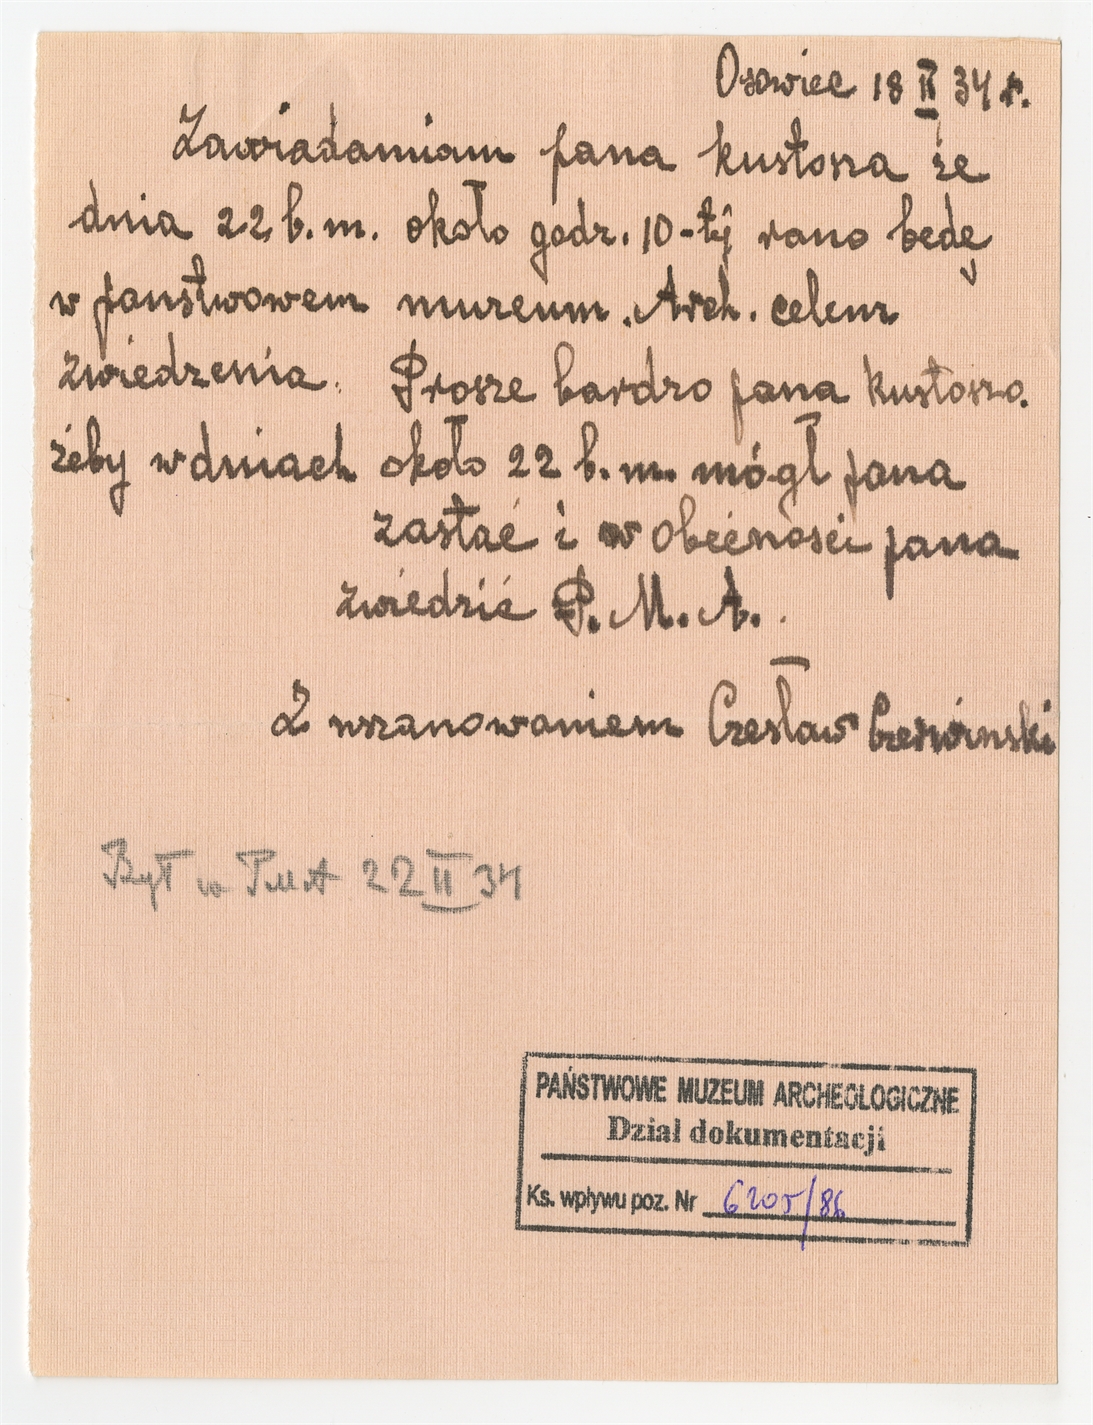 Osowiec 18 II 34 r.
Zawiadamiam pana kustosza że
dnia 22 b.m. około godz. 10-tij rano będę
w państwowem muzeum. Arch. celem
zwiedzenia. Prosze bardzo pana kustosza.
żeby w dniach około 22 b.m. mógł pana
zastać i w obecności pana
zwiedzić P.M.A.
Z uszanowaniem Czesław
Był w PMA 22 II 34
PAŃSTWOWE MUZEUM ARCHEOLOGICZNE
Dział dokumentacji
Ks. wpływu poz. Nr 6205/86